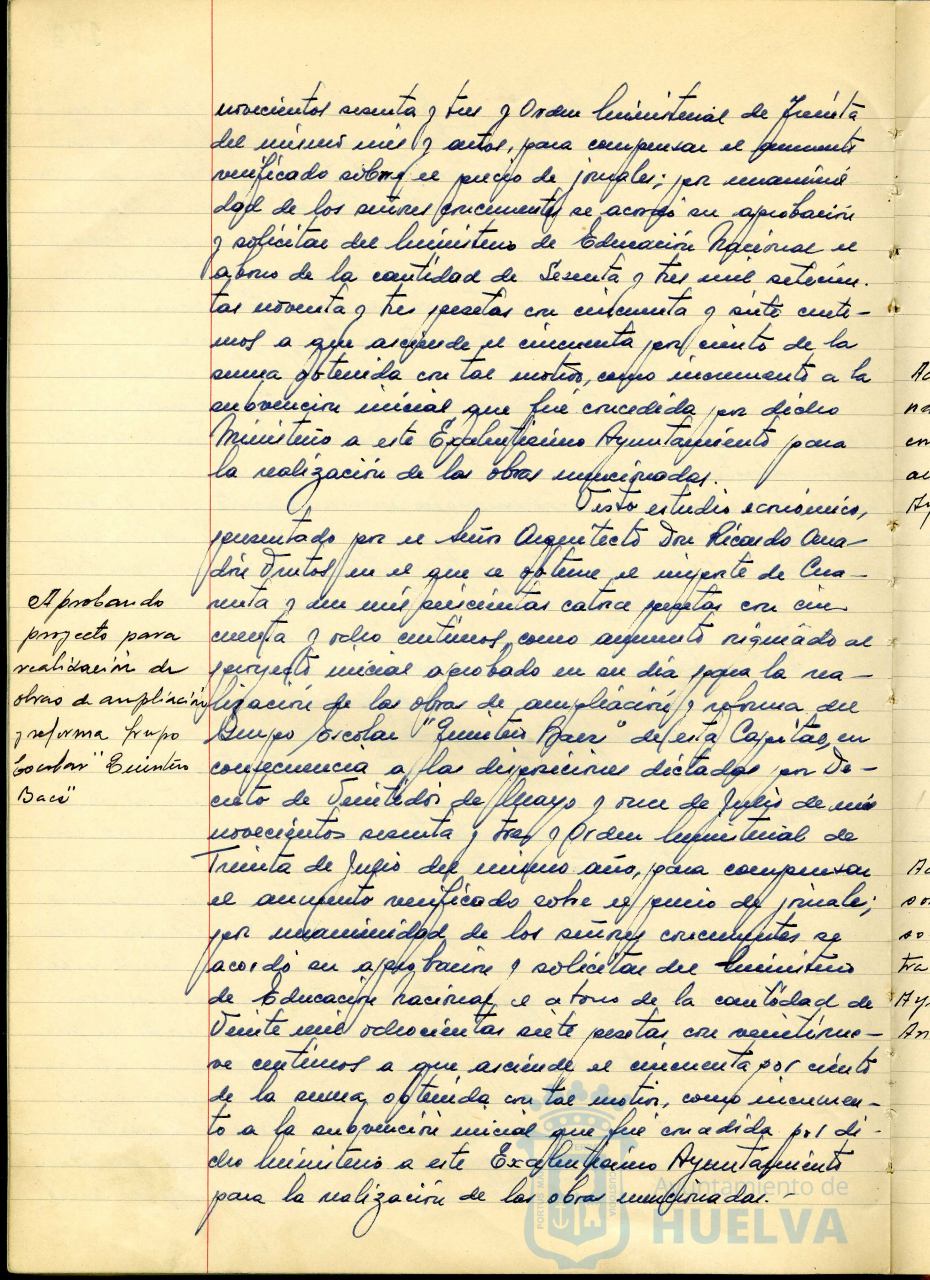 novecientos sesenta y tres y Orden Ministerial de Treinta
del mismo mes y años, para compensar el aumento
verificado sobre el precio de jornales; por unanimi
dad de los señores concurrentes se acordó su aprobación
y solicitar del Ministerio de Educación Nacional el
abono de la cantidad de Sesenta y tres mil setecien.
tas noventa y tres pesetas con cincuenta y siete cénti-
mos a que asciende el cincuenta por ciento de la
suma obtenida con tal motivo, como incremento a la
subvención inicial que fué concedida por dicho
Ministerio a este Excelentísimo Ayuntamiento para
la realización de las obras mencionadas.
Visto estudio económico,
presentado por el Señor Arquitecto Don Ricardo Ana-
dón Frutos en el que se obtiene el importe de Cua-
renta y un mil seiscientas catorce pesetas con cin-
cuenta y ocho centimos, como aumento originado al
proyecto inicial aprobado en su día para la rea-
lización de las obras de ampliación y reforma del
Grupo Escolar "Quintero Baez" de esta Capital, en
consecuencia a las disposiciones dictadas por De-
creto de Veintidós de Mayo y once de Julio de mil
novecientos sesenta y tres y Orden Ministerial de
Treinta de Julio del mismo año, para compensar
el aumento verificado sobre el precio de jornales;
por unanimidad de los señores concurrentes se
acordó su aprobación y solicitar del Ministerio
de Educación Nacional el abono de la cantidad de
Veinte mil ochocientas siete pesetas con veintinue-
ve centimos a que asciende el cincuenta por ciento
de la suma obtenida con tal motivo, como incremen-
to a la subvención inicial que fué concedida por di-
cho Ministerio a este Excelentísimo Ayuntamiento
para la realización de las obras mencionadas.-
Aprobando
proyecto para
realización de
obras de ampliación
y reforma Grupo
Escolar "Quintero
Baez"
Ayuntamiento de
HUELVA